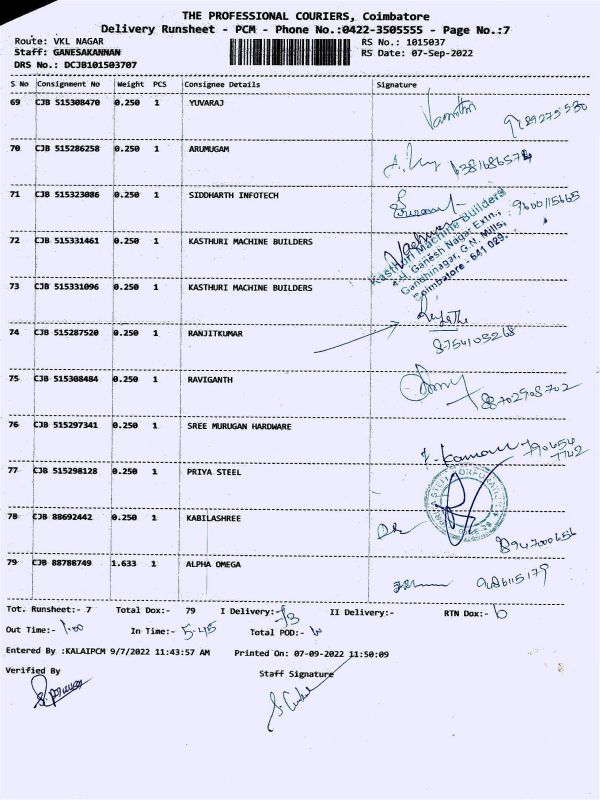 THE PROFESSIONAL COURIERS, Coimbatore
Delivery Runsheet - PCM - Phone No.:0422-3505555 - Page No.:7
Route: VKL NAGAR RS No.: 1015037
Staff: GANESAKANNAN RS Date: 07-Sep-2022
DRS No.: DCJB101503707
S No Consignment No Weight PCS Consignee Details Signature
69 CJB 515308470 0.250 1 YUVARAJ
70 CJB 515286258 0.250 1 ARUMUGAM
71 CJB 515323086 0.250 1 SIDDHARTH INFOTECH
72 CJB 515331461 0.250 1 KASTHURI MACHINE BUILDERS
Kasthuri Machine Builders
4-H, Ganesh Nagar Extn.,
Gandhinagar, G.N. Mills,
Coimbatore - 641 029.
73 CJB 515331096 0.250 1 KASTHURI MACHINE BUILDERS
74 CJB 515287520 0.250 1 RANJITKUMAR
8754105268
75 CJB 515308484 0.250 1 RAVIGANTH
88702908702
76 CJB 515297341 0.250 1 SREE MURUGAN HARDWARE
77 CJB 515298128 0.250 1 PRIYA STEEL
78 CJB 88692442 0.250 1 KABILASHREE
8947000656
79 CJB 88788749 1.633 1 ALPHA OMEGA
Tot. Runsheet:- 7 Total Dox:- 79 I Delivery:- 73 II Delivery:- RTN Dox:- 6
Out Time:- 1.00 In Time:- 5.45 Total POD:-
Entered By :KALAIPCM 9/7/2022 11:43:57 AM Printed On: 07-09-2022 11:50:09
Verified By Staff Signature